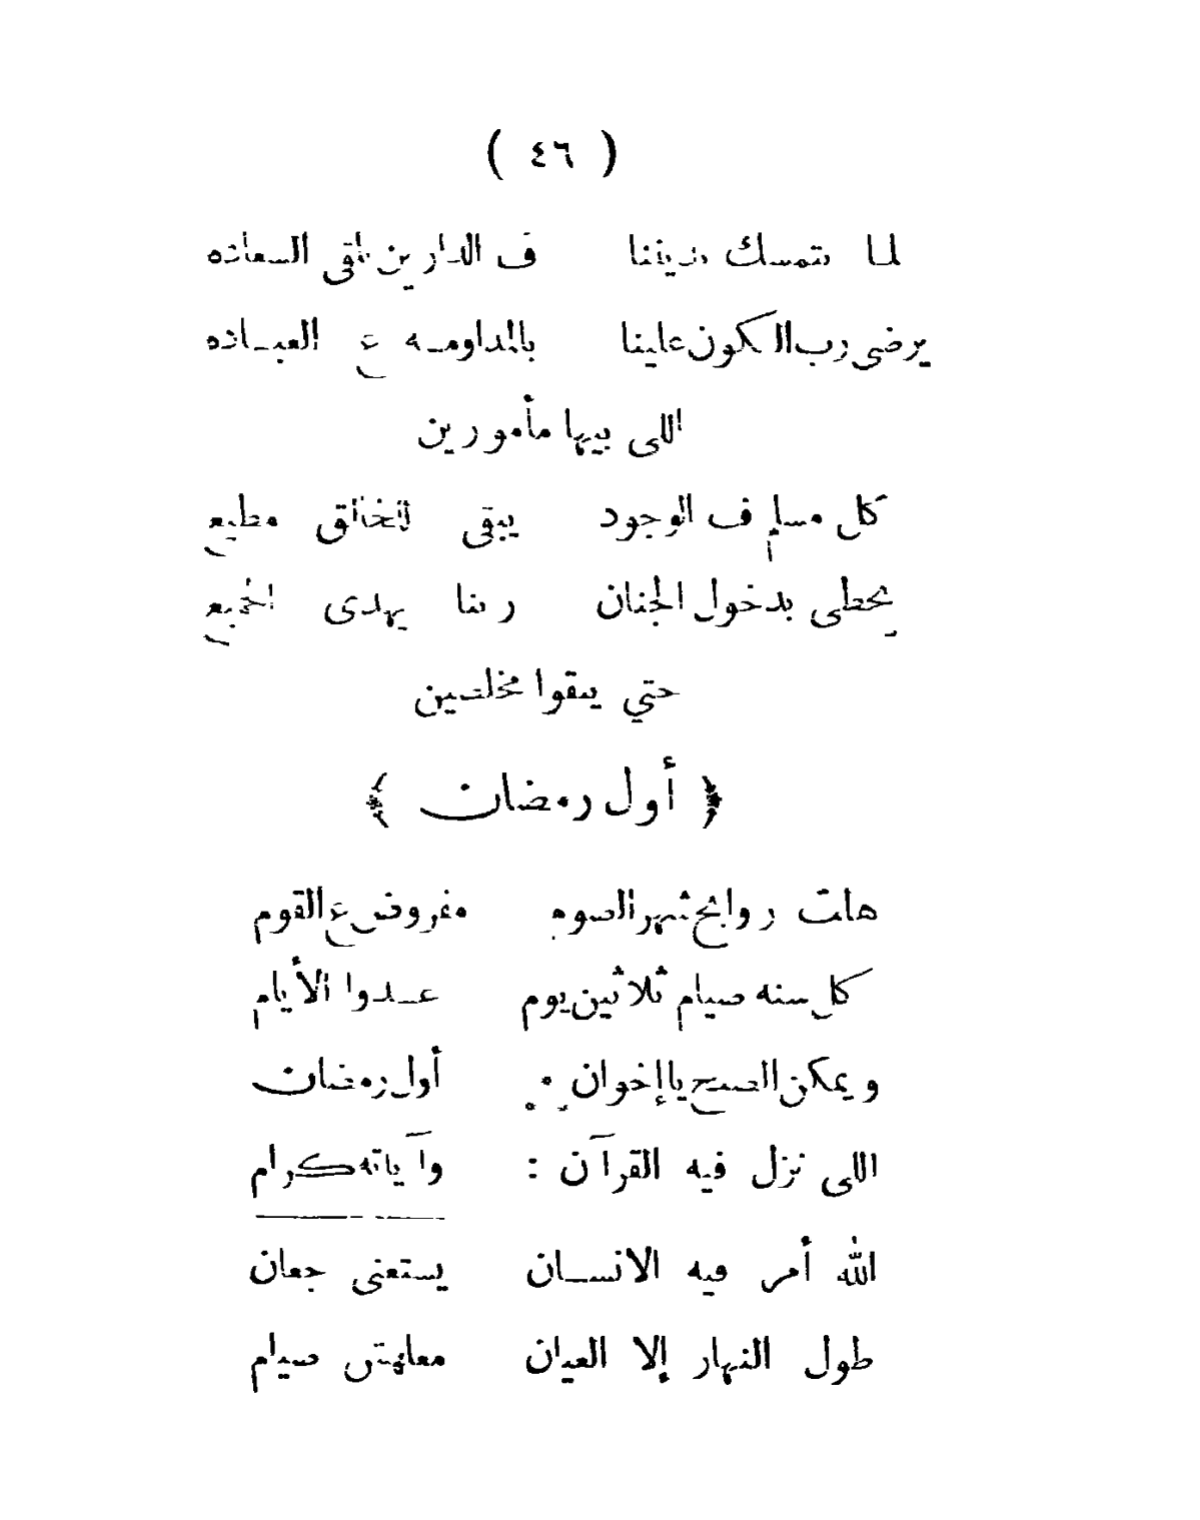 ( ٤٦ )
لما نتمسك بديننا ف الدارين نلقى السعاده
يرضى رب الكون علينا بالمداومه ع العباده
اللى بيها مأمورين
كل مسلم ف الوجود يبقى للخالق مطيع
يحظى بدخول الجنان ربنا يهدى الجميع
حتي يبقوا مخلصين
﴿ أول رمضان ﴾
هلت روايح شهر الصوم مفروض ع القوم
كل سنه صيام ثلاثين يوم عدوا الأيام
ويمكن الصبح يا إخوان أول رمضان
اللى نزل فيه القرآن : وآياته كرام
الله أمر فيه الانسان يستعنى جعان
طول النهار إلا العيان معلهش صيام